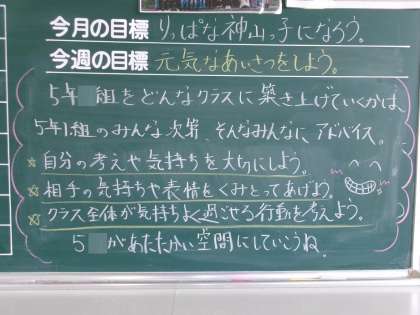 今月の目標 りっぱな神山っ子になろう。
今週の目標 元気なあいさつをしよう。
5年 組をどんなクラスに築き上げていくかは、
5年1組のみんな次第、そんなみんなに アドバイス。
☆自分の考えや気持ちを大切にしよう。
☆相手の気持ちや表情をくみとってあげよう。
☆クラス全体が気持ちよく過ごせる行動を考えよう。
5 があたたかい空間にしていこうね。